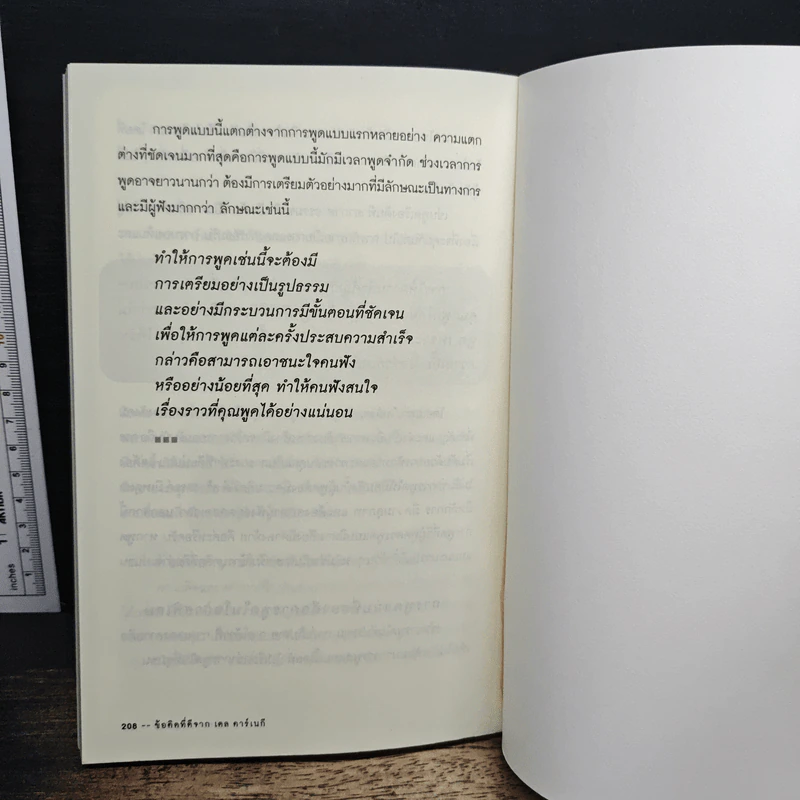 การพูดแบบนี้แตกต่างจากการพูดแบบแรกหลายอย่าง ความแตก
ต่างที่ชัดเจนมากที่สุดคือการพูดแบบนี้มักมีเวลาพูดจำกัด ช่วงเวลาการ
พูดอาจยาวนานกว่า ต้องมีการเตรียมตัวอย่างมากที่มีลักษณะเป็นทางการ
และมีผู้ฟังมากกว่า ลักษณะเช่นนี้
ทำให้การพูดเช่นนี้จะต้องมี
การเตรียมอย่างเป็นรูปธรรม
และอย่างมีกระบวนการมีขั้นตอนที่ชัดเจน
เพื่อให้การพูดแต่ละครั้งประสบความสำเร็จ
กล่าวคือสามารถเอาชนะใจคนฟัง
หรืออย่างน้อยที่สุด ทำให้คนฟังสนใจ
เรื่องราวที่คุณพูดได้อย่างแน่นอน
206 -- ข้อคิดที่ดีจาก เดล คาร์เนกี
inches